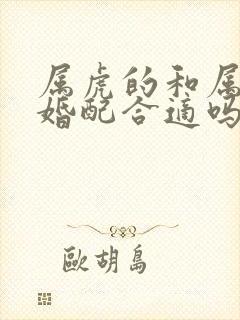 属虎的和属
婚配合适吗
歐胡島